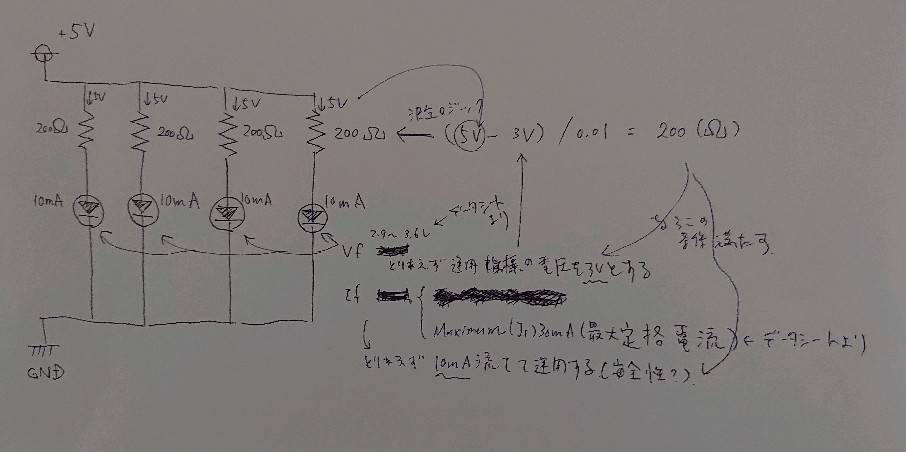 +5V
↓5V ↓5V ↓5V ↓5V
200Ω 200Ω 200Ω 200Ω ← (5V - 3V) / 0.01 = 200 (Ω)
10mA 10mA 10mA 10mA
データシートより
2.9~3.6V
Vf
とりあえず運用 の電圧を3Vとする
この条件満たす
If
Maximum(If)30mA(最大定格電流)←データシートより
とりあえず10mA流して運用する(安全性?)
GND